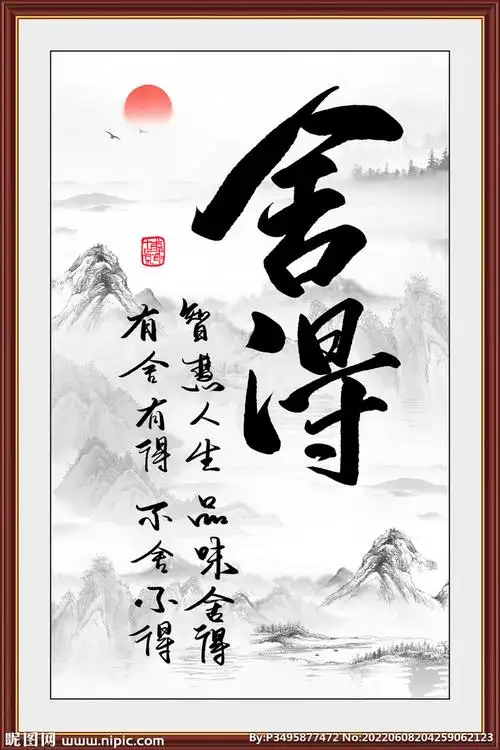 舍得
智慧人生 品味舍得
有舍有得 不舍不得
昵图网 www.nipic.com
By:P3495877472 No:20220608204259062123